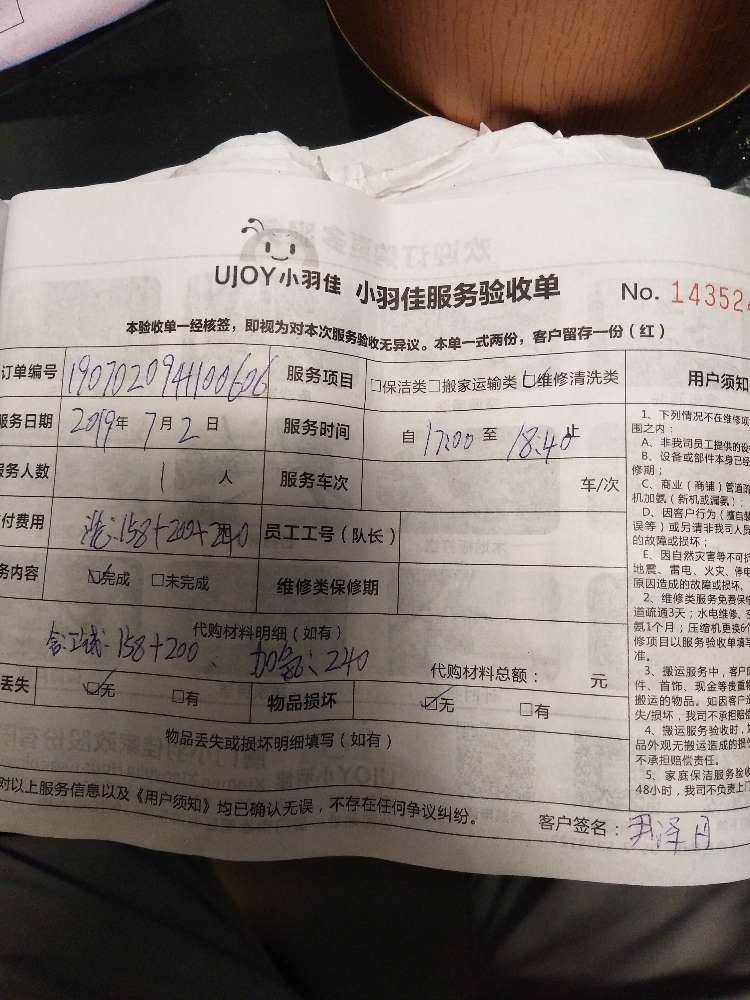 UJOY小羽佳 小羽佳服务验收单 No. 143524
本验收单一经核签，即视为对本次服务验收无异议。本单一式两份，客户留存一份（红）
订单编号 190702094100606 服务项目 □保洁类□搬家运输类☑维修清洗类 用户须知
服务日期 2019年7月2日 服务时间 自17:00至18:40止
服务人数 1人 服务车次 车/次
付费用 158+200+240 员工工号（队长）
务内容 ☑完成 □未完成 维修类保修期
代购材料明细（如有）
158+200、加氨：240 代购材料总额： 元
丢失 ☑无 □有 物品损坏 ☑无 □有
物品丢失或损坏明细填写（如有）
对以上服务信息以及《用户须知》均已确认无误，不存在任何争议纠纷。 客户签名：尹泽月
1、下列情况不在维修
围之内：
A、非我司员工提供的
B、设备或部件本身已经
修期；
C、商业（商铺）管道
机加氨（新机或漏氨）；
D、因客户行为（擅自
误等）或另请非我司人员
的故障或损坏；
E、因自然灾害等不可抗
地震、雷电、火灾、停电
原因造成的故障或损坏。
2、维修类服务免费保
道疏通3天；水电维修、
氨1个月；压缩机更换6个
修项目以服务验收单填写
准。
3、搬运服务中，客户
件、首饰、现金等贵重物
搬运的物品。如因客户
失/损坏，我司不承担赔偿
4、搬运服务验收时，
品外观无搬运造成的损
不承担赔偿责任。
5、家庭保洁服务验收
48小时，我司不负责上门